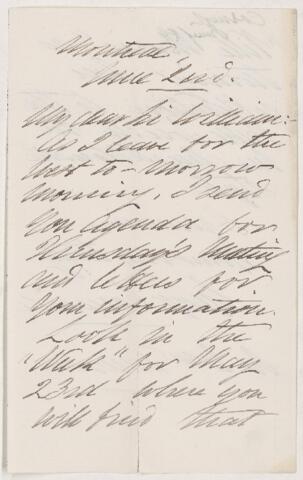 Montreal,
June 2nd.
My dear Sir William:
As I leave for the
West to-morrow
morning, I send
you Agenda for
Wednesday's Meeting
and letters for
your information.
Look in the
"Week" for May
23rd where you
will find that